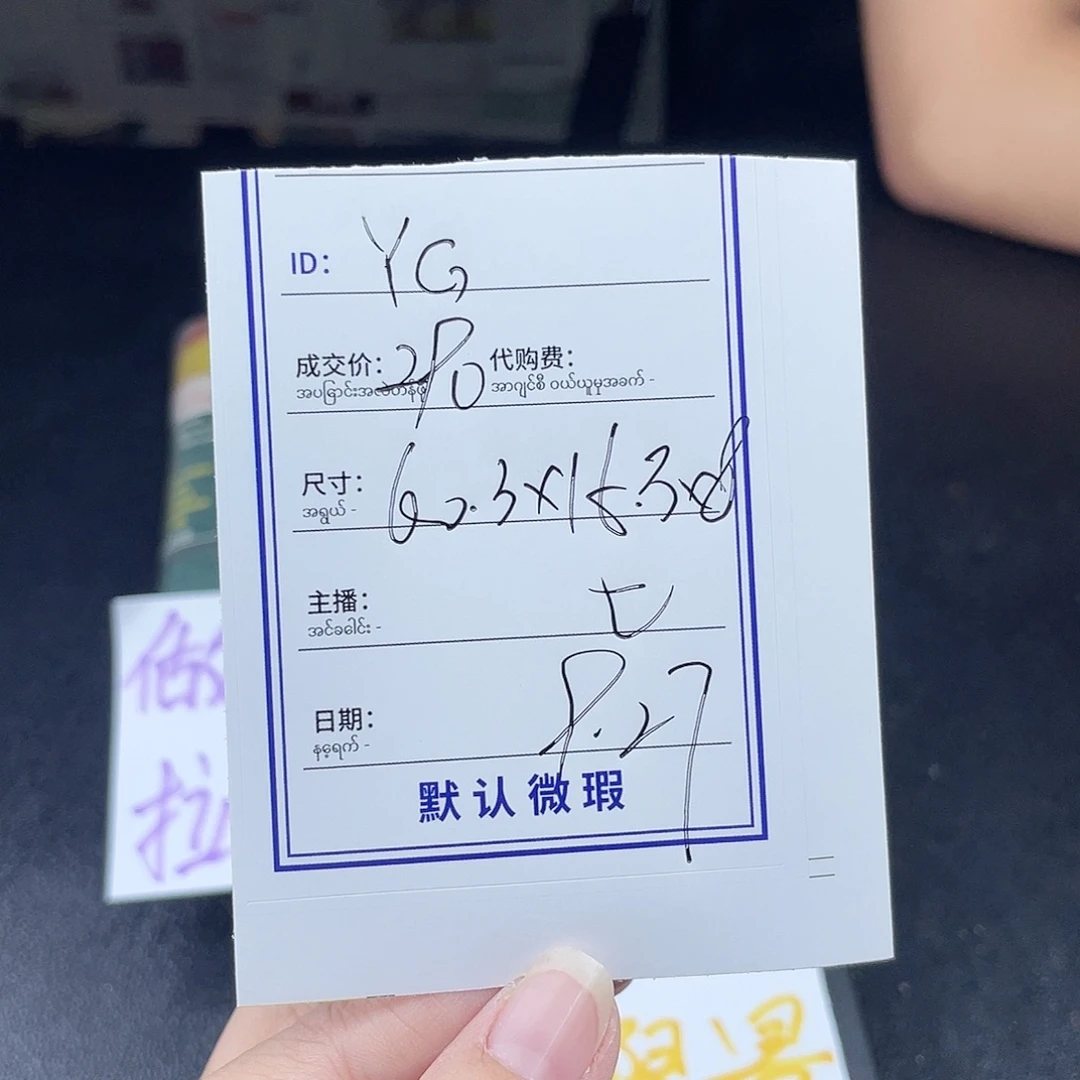 ID: YG
成交价: 290 代购费:
အပြောင်းအလဲတန်ဖိုး အာဂျင်စီ ဝယ်ယူမှုအခက် -
尺寸: 60.3×16.3×8
အရွယ် -
主播: 七
အင်ခေါင်း -
日期: 9.27
နေ့ရက် -
默认微瑕
做
拉